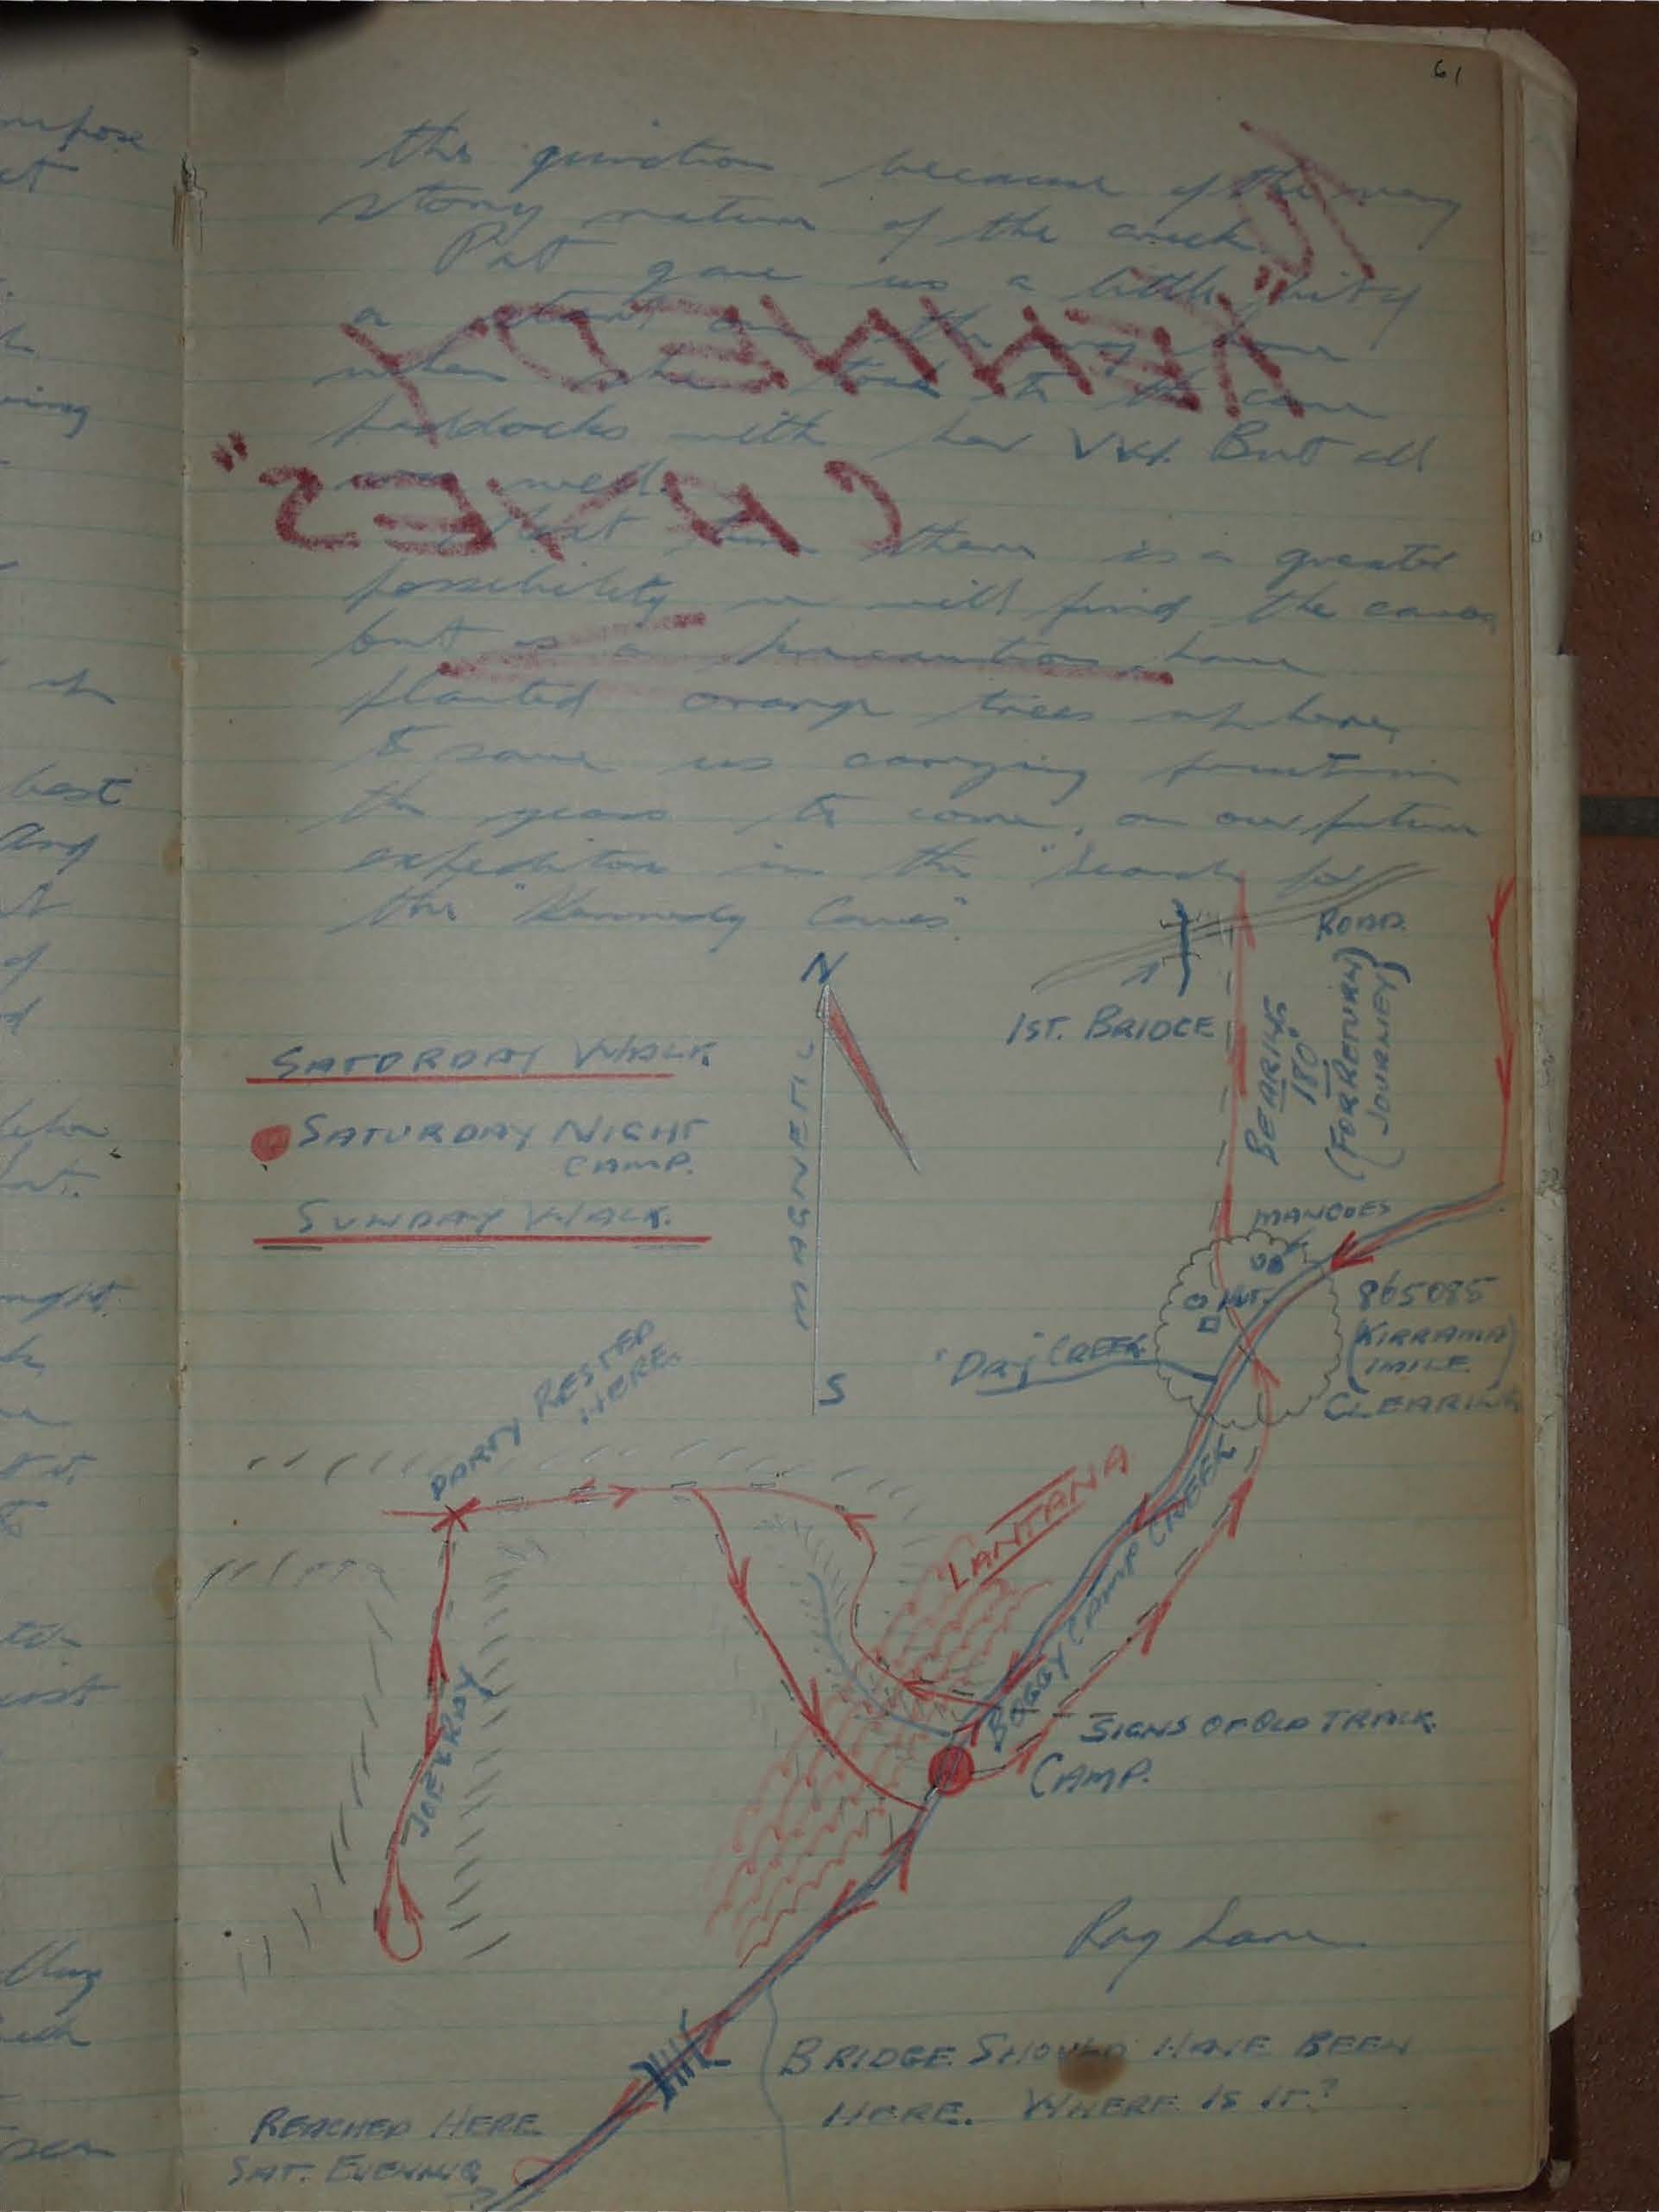 61
this question because of the very
stony nature of the creek.
Pat gave us a little pity
a
when she took to the cane
paddocks with her VW. But all
was well.
Next time there is a greater
possibility we will find the caves
but as a precaution, have
planted orange trees up here,
to save us carrying fruit in
the years to come, on our future
expedition in the "Search for
the "Kennedy Caves"
KENNEDY
CAVES"
N
ROAD.
1ST. BRIDGE
BEARING
180°
(FOR RETURN)
(JOURNEY)
SATURDAY WALK.
SATURDAY NIGHT
CAMP.
SUNDAY WALK.
MAGNETIC
S
MANGOES
HUT
865085
(KIRRAMA)
(1 MILE)
CLEARING
"DRY" CREEK
PARTY RESTED
HERE.
LANTANA
BOGGY CAMP CREEK
JOE & ROY
SIGNS OF OLD TRACK.
CAMP.
Ray Lane
BRIDGE SHOULD HAVE BEEN
HERE. WHERE IS IT?
REACHED HERE
SAT. EVENING